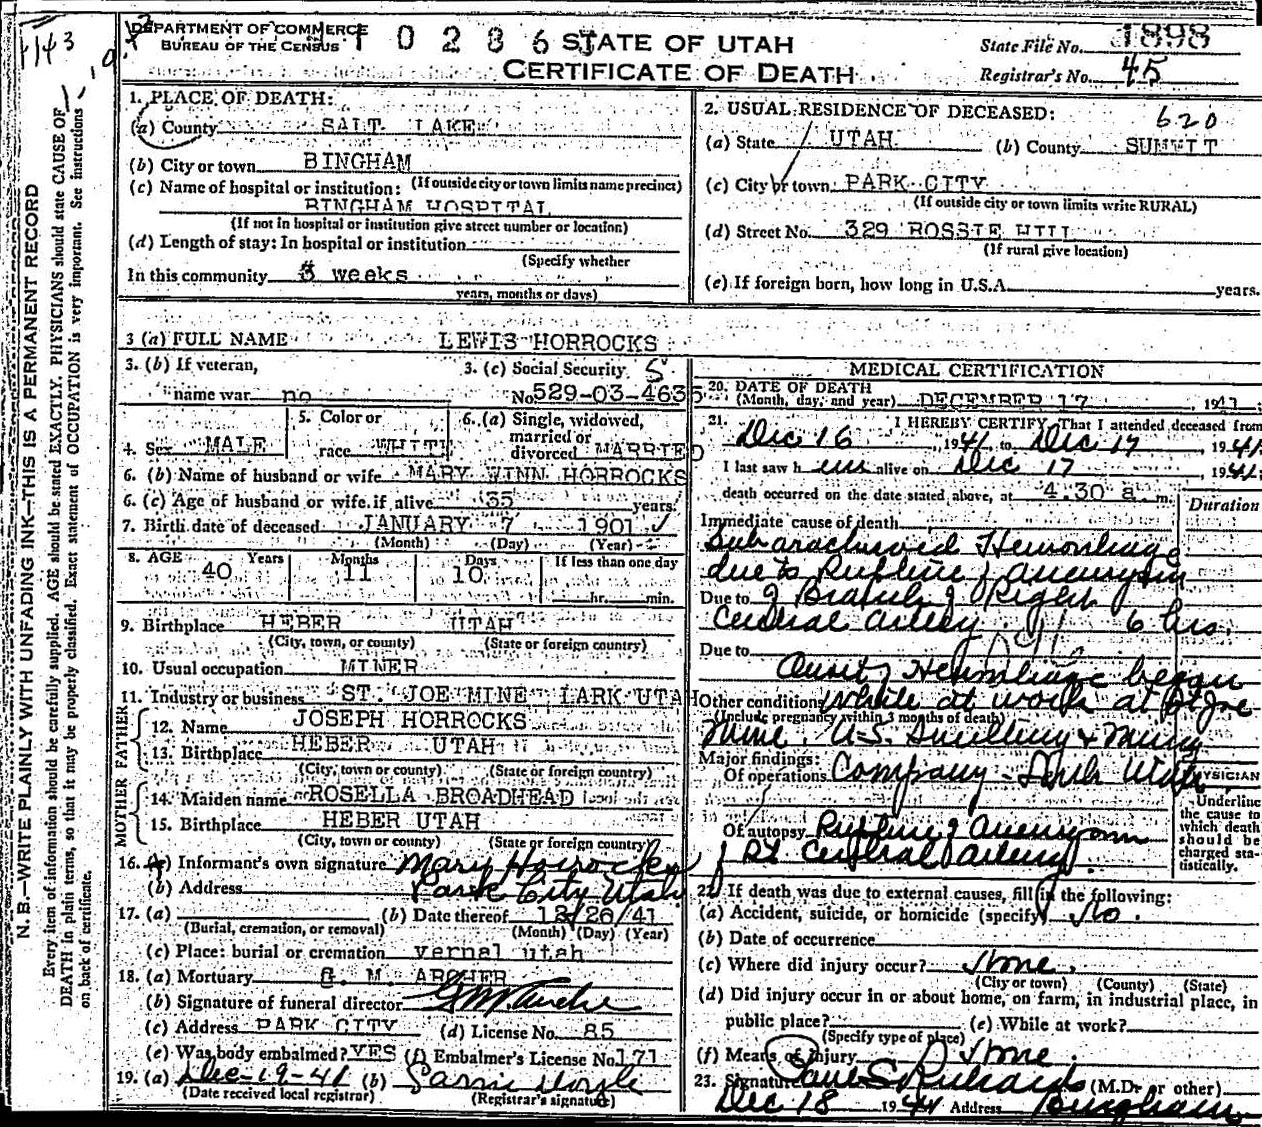 DEPARTMENT OF COMMERCE
BUREAU OF THE CENSUS
STATE OF UTAH
CERTIFICATE OF DEATH
State File No. 1898
Registrar's No. 45
N.B.—WRITE PLAINLY WITH UNFADING INK—THIS IS A PERMANENT RECORD
Every item of information should be carefully supplied. AGE should be stated EXACTLY. PHYSICIANS should state CAUSE OF
DEATH in plain terms, so that it may be properly classified. Exact statement of OCCUPATION is very important. See instructions
on back of certificate.
1. PLACE OF DEATH:
(a) County SALT LAKE
(b) City or town BINGHAM
(If outside city or town limits name precinct)
(c) Name of hospital or institution:
BINGHAM HOSPITAL
(If not in hospital or institution give street number or location)
(d) Length of stay: In hospital or institution
(Specify whether
In this community 3 weeks
years, months or days)
2. USUAL RESIDENCE OF DECEASED:
620
(a) State UTAH (b) County SUMMIT
(c) City or town PARK CITY
(If outside city or town limits write RURAL)
(d) Street No. 329 ROSSIE HILL
(If rural give location)
(e) If foreign born, how long in U.S.A. years.
3 (a) FULL NAME LEWIS HORROCKS
3. (b) If veteran,
name war no
3. (c) Social Security
No. 529-03-4635
4. Sex MALE
5. Color or
race WHITE
6. (a) Single, widowed,
married or
divorced MARRIED
6. (b) Name of husband or wife MARY WINN HORROCKS
6. (c) Age of husband or wife if alive 35 years.
7. Birth date of deceased JANUARY 7 1901
(Month) (Day) (Year)
8. AGE Years 40 Months 11 Days 10 If less than one day
hr. min.
9. Birthplace HEBER UTAH
(City, town, or county) (State or foreign country)
10. Usual occupation MINER
11. Industry or business ST. JOE MINE LARK UTAH
FATHER
12. Name JOSEPH HORROCKS
13. Birthplace HEBER UTAH
(City, town or county) (State or foreign country)
MOTHER
14. Maiden name ROSELLA BROADHEAD
15. Birthplace HEBER UTAH
(City, town, or county) (State or foreign country)
16. (a) Informant's own signature Mary Horrocks
(b) Address Park City Utah
17. (a) (b) Date thereof 12/20/41
(Burial, cremation, or removal) (Month) (Day) (Year)
(c) Place: burial or cremation vernal utah
18. (a) Mortuary G. M. ARCHER
(b) Signature of funeral director G M Archer
(c) Address PARK CITY (d) License No. 85
(e) Was body embalmed? YES (f) Embalmer's License No. 171
19. (a) Dec-19-41 (b)
(Date received local registrar) (Registrar's signature)
MEDICAL CERTIFICATION
20. DATE OF DEATH
(Month, day, and year) DECEMBER 17, 1941
21. I HEREBY CERTIFY, That I attended deceased from
Dec 16 1941 to Dec 17 1941
I last saw him alive on Dec 17 1941
death occurred on the date stated above, at 4:30 a. m.
Duration
Immediate cause of death
Subarachnoid Hemorrhage
due to Rupture of aneurysm
Due to of Branch of Right
Central artery. 6 hrs.
Due to
Onset of Hemorrhage began
Other conditions while at work at St Joe
(Include pregnancy within 3 months of death)
Mine. U.S. Smelting & Mining
Major findings:
Of operations Company - Lark Utah
PHYSICIAN
Underline
the cause to
which death
should be
charged sta-
tistically.
Of autopsy Rupture of Aneurysm
of Rt Central Artery
22. If death was due to external causes, fill in the following:
(a) Accident, suicide, or homicide (specify) No.
(b) Date of occurrence
(c) Where did injury occur? None.
(City or town) (County) (State)
(d) Did injury occur in or about home, on farm, in industrial place, in
public place? (e) While at work?
(Specify type of place)
(f) Means of injury None.
23. Signature Paul S Richards (M.D. or other)
Dec 18 1941 Address Bingham